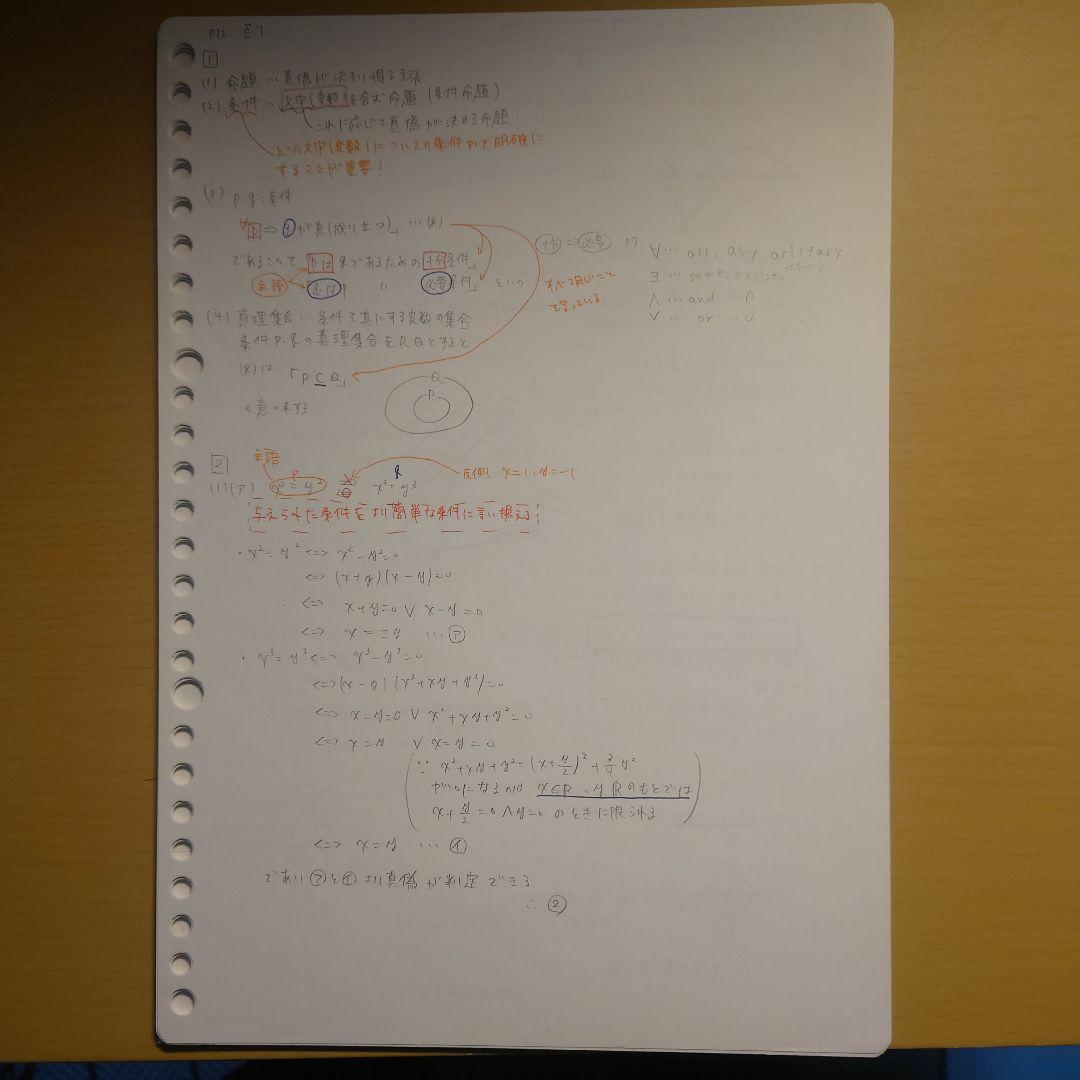 P12 §1
1
(1) 命題 … 真偽が決まり得る主張
(2) 条件 … 文字(変数)を含む命題 (条件命題)
これに応じて真偽が決する命題
どの文字(変数)についての条件かを明確に
することが重要!
(3) p, q : 条件
「p ⇒ qが真(成り立つ)」 …(*)
であることを「pはqであるための十分条件」
主語 「qはp 〃 必要条件」 という
十分 ⇒ 必要
すべて同じこと
を言っている
P7 ∀ … all, any arbitrary
∃ … some, exist
∧ … and … ∩
∨ … or … ∪
(4) 真理集合 … 条件を真にする変数の集合
条件p, qの真理集合をP, Qとすると
(*)は 「P ⊆ Q」
を意味する
Q
P
2
主語
(1)(ア) p x²=y² q x³=y³
反例 x=1, y=-1
与えられた条件をより簡単な条件に言い換える!
・x²=y² <=> x²-y²=0
<=> (x+y)(x-y)=0
<=> x+y=0 ∨ x-y=0
<=> x=±y …ア
・x³=y³ <=> x³-y³=0
<=> (x-y)(x²+xy+y²)=0
<=> x-y=0 ∨ x²+xy+y²=0
<=> x=y ∨ x=y=0
(∵ x²+xy+y²=(x+y/2)²+3/4y²
が0になるのは x∈R、y Rのもとでは
x+y/2=0∧y=0 のときに限られる)
<=> x=y …イ
であり アとイより真偽が判定できる
∴ ②